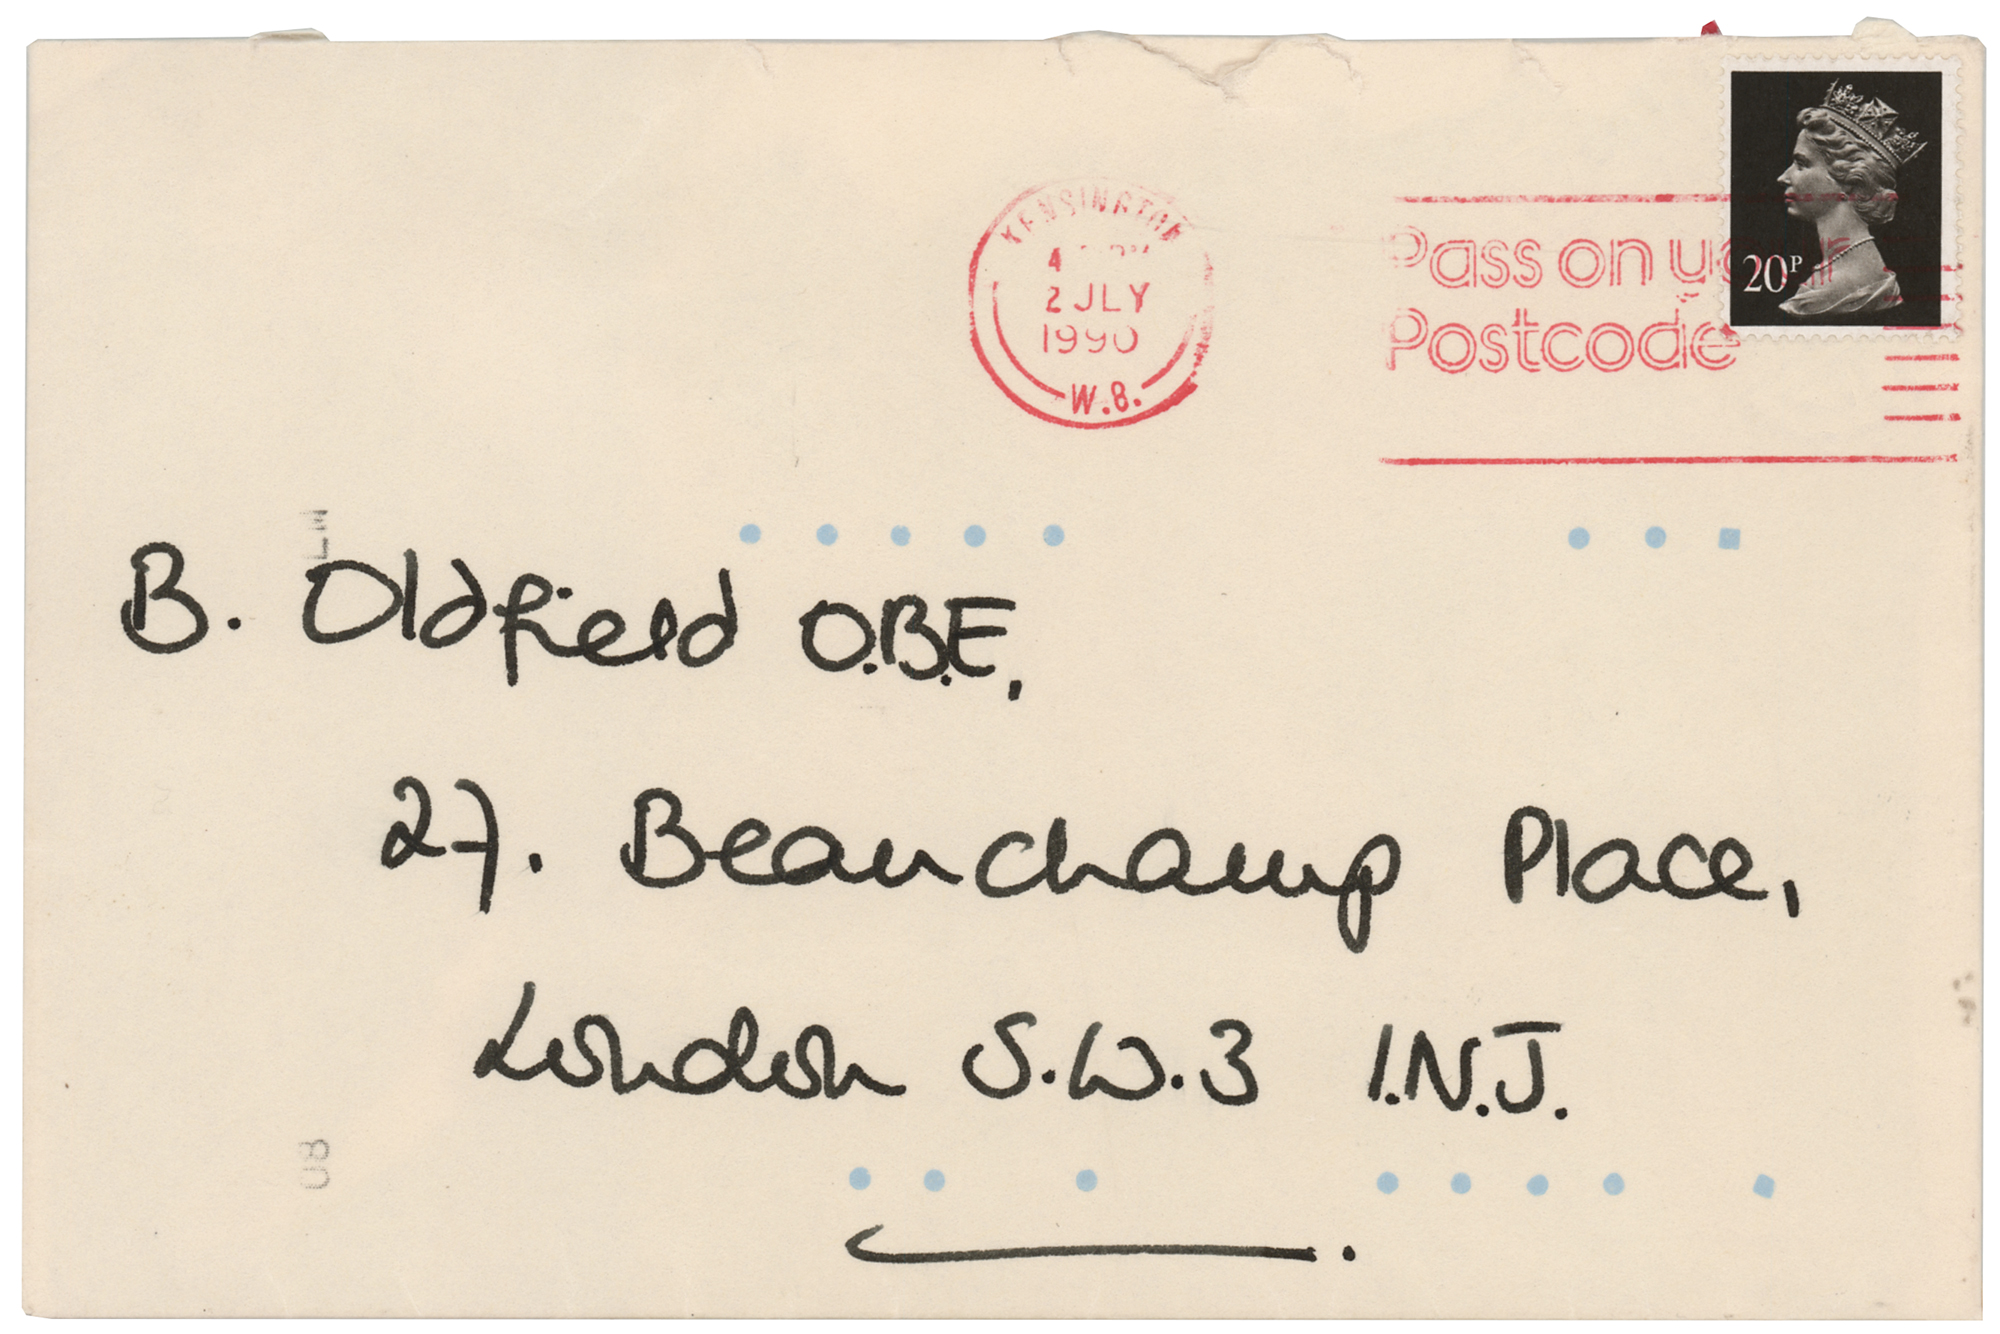 KENSINGTON
2 JLY
1990
W.8.
Pass on your
Postcode
20P
B. Oldfield O.B.E,
27. Beauchamp Place,
London S.W.3 1.N.J.